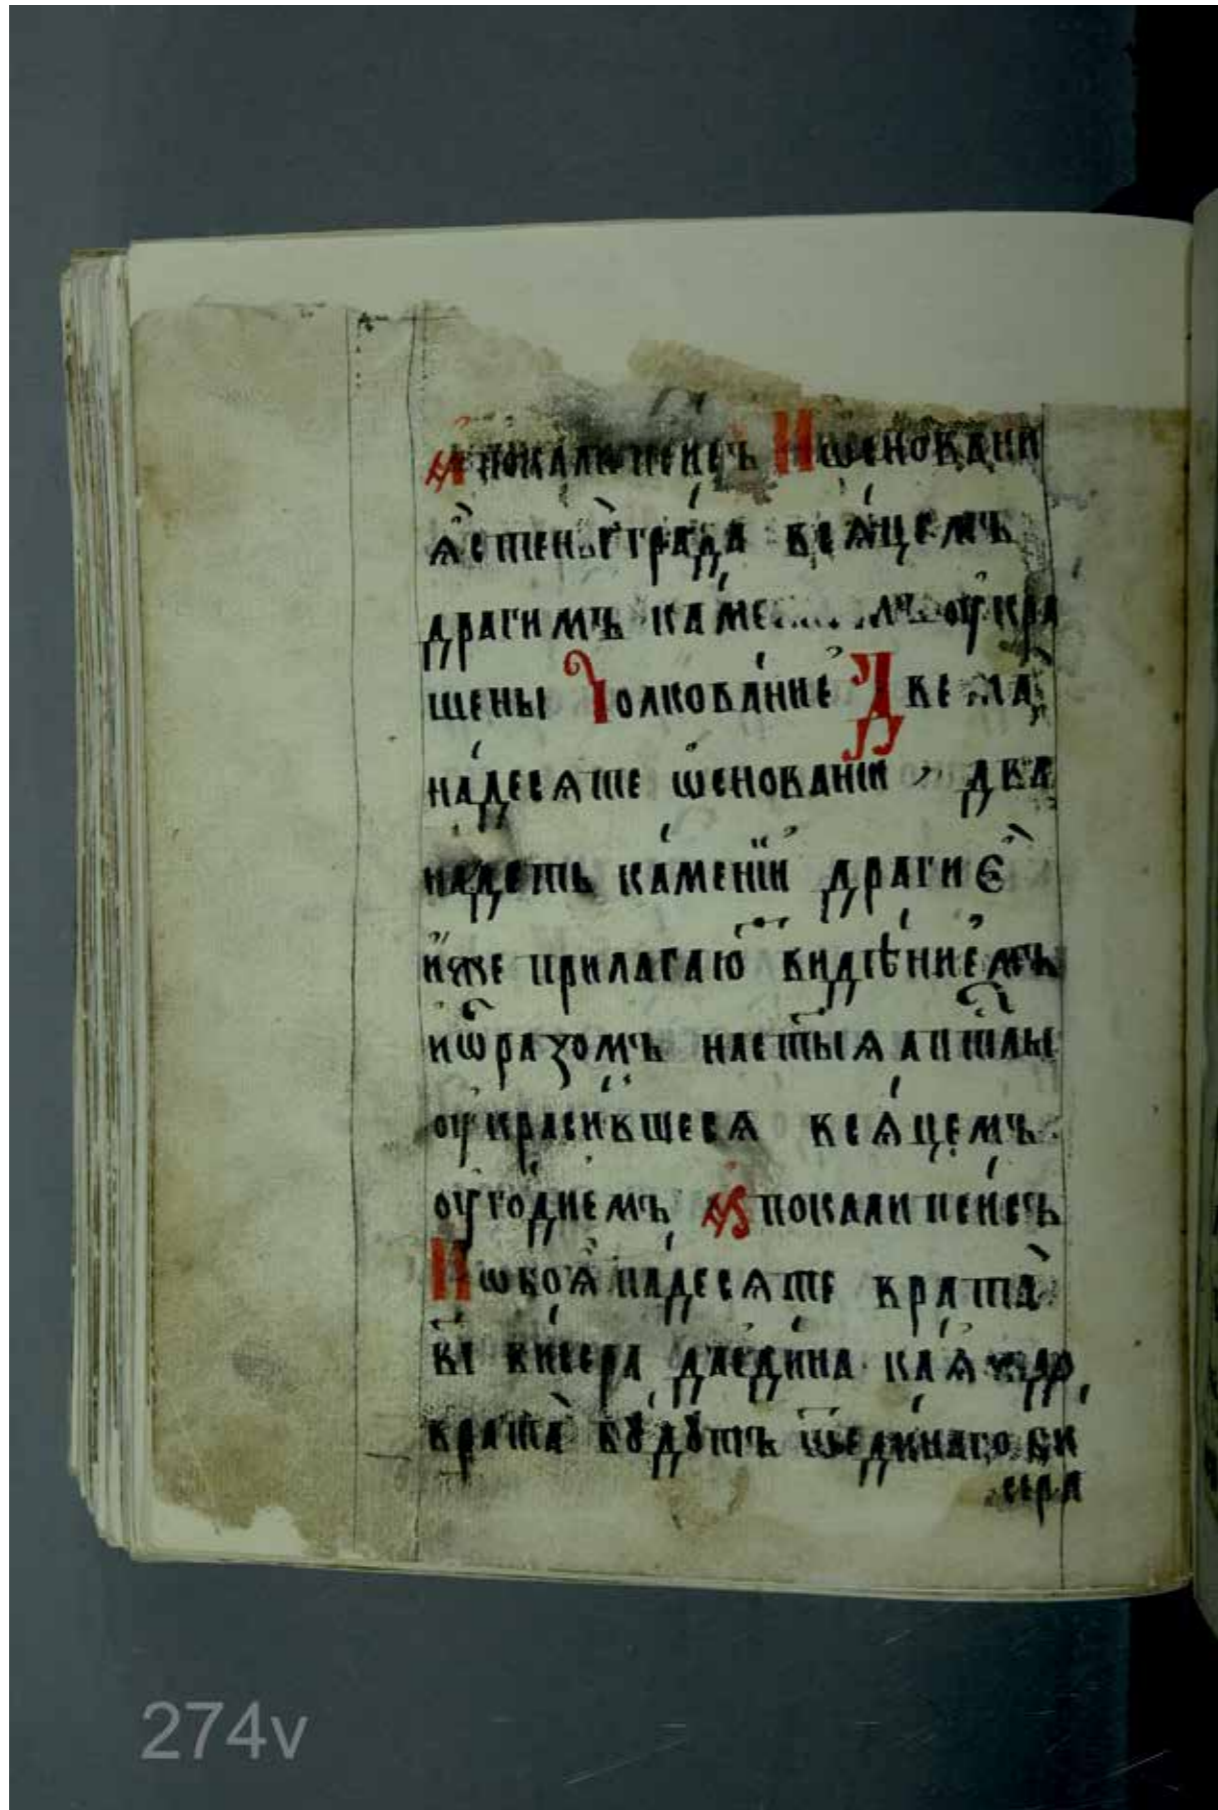 Апокалипсисъ И ѡснокани
ѧ стены града всѧцемъ
драгимъ каме лъ оукра
шены Толкование Две ла
надесѧте ѡснованїи , два
надеть каменїи драгиѐ
иже прилагаю видѣниемъ
иѡразомъ настыѧ аптлы
оукрасившесѧ всѧцемъ
оугоднемъ Апокалипсисъ
И ѡбоѧ надесѧте врата
вı висера даедина каѧждо
врата бꙋдꙋтъ ѿединаго би
сера
274v